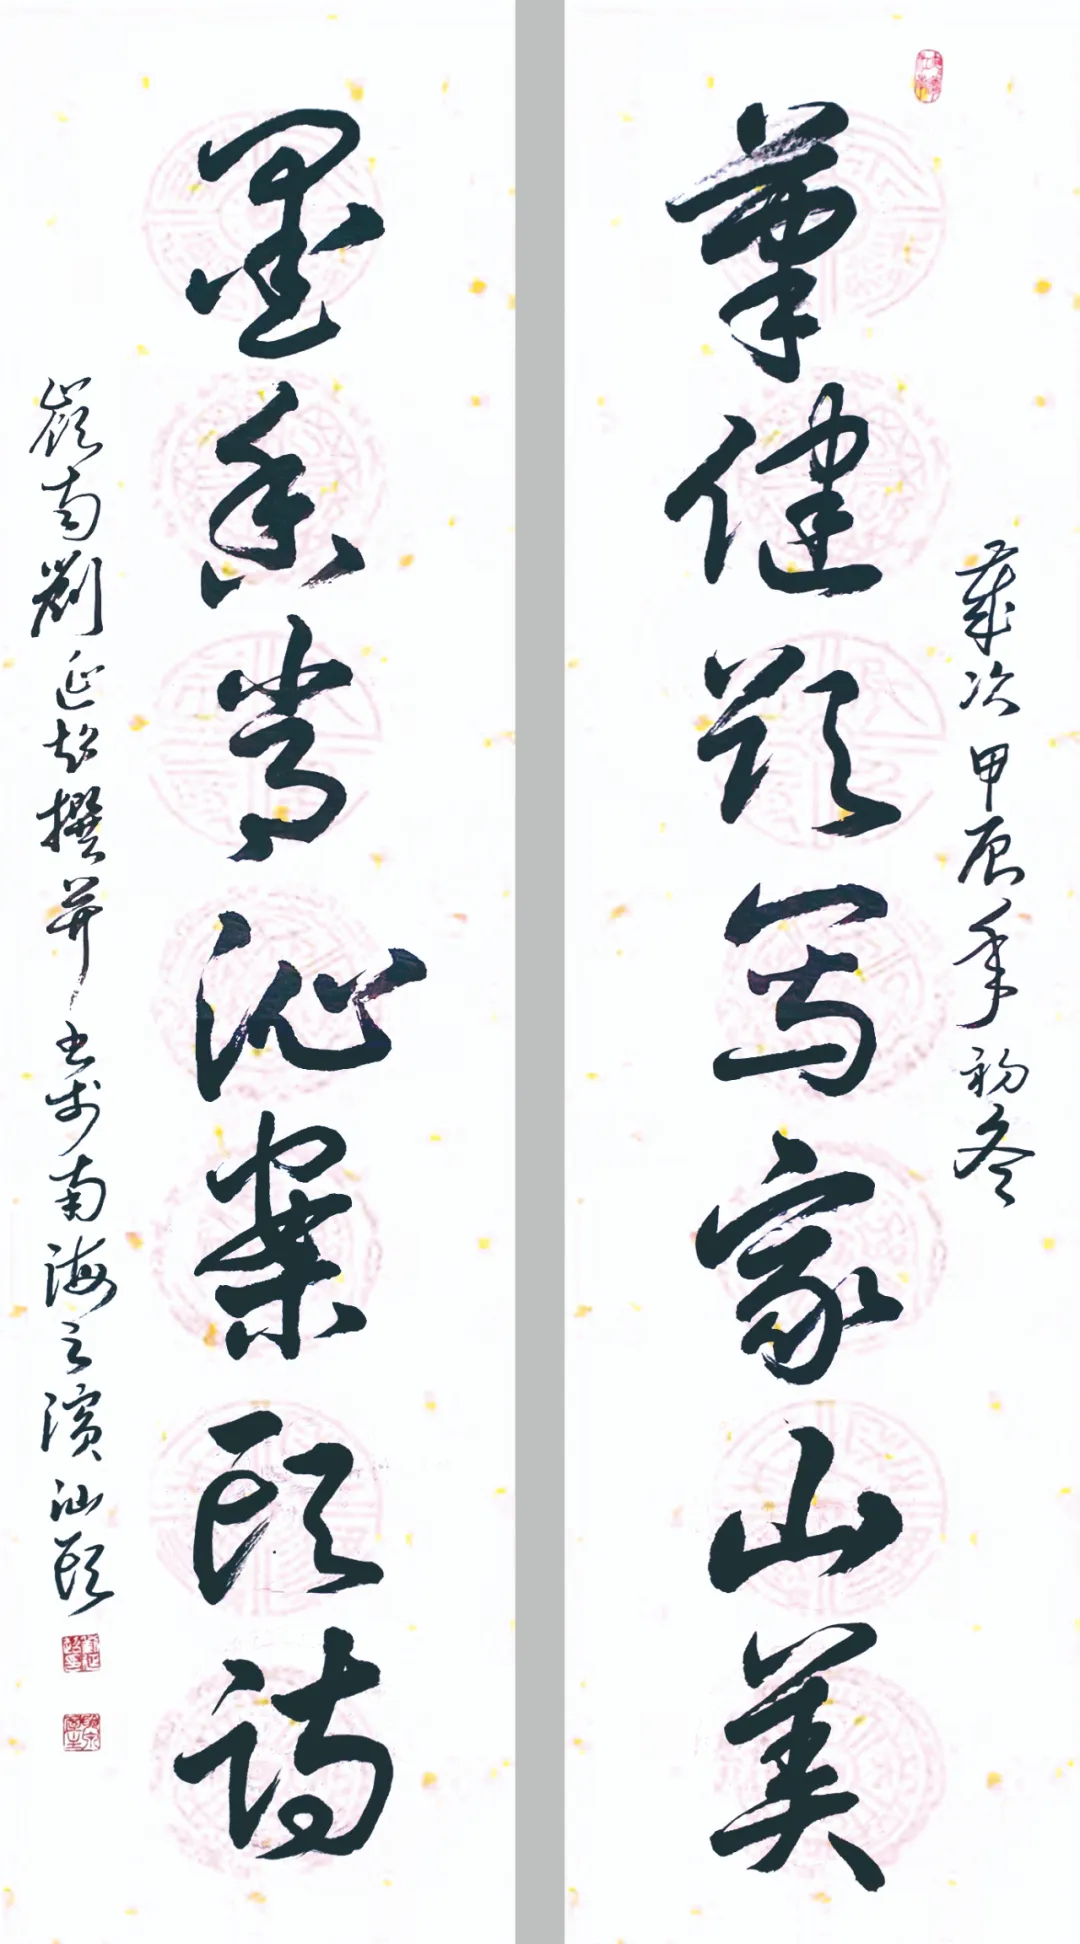 筆健歡寫家山美
歲次甲辰年初冬
墨香常沁案頭詩
嶺南劉延超撰并书於南海之濱汕頭